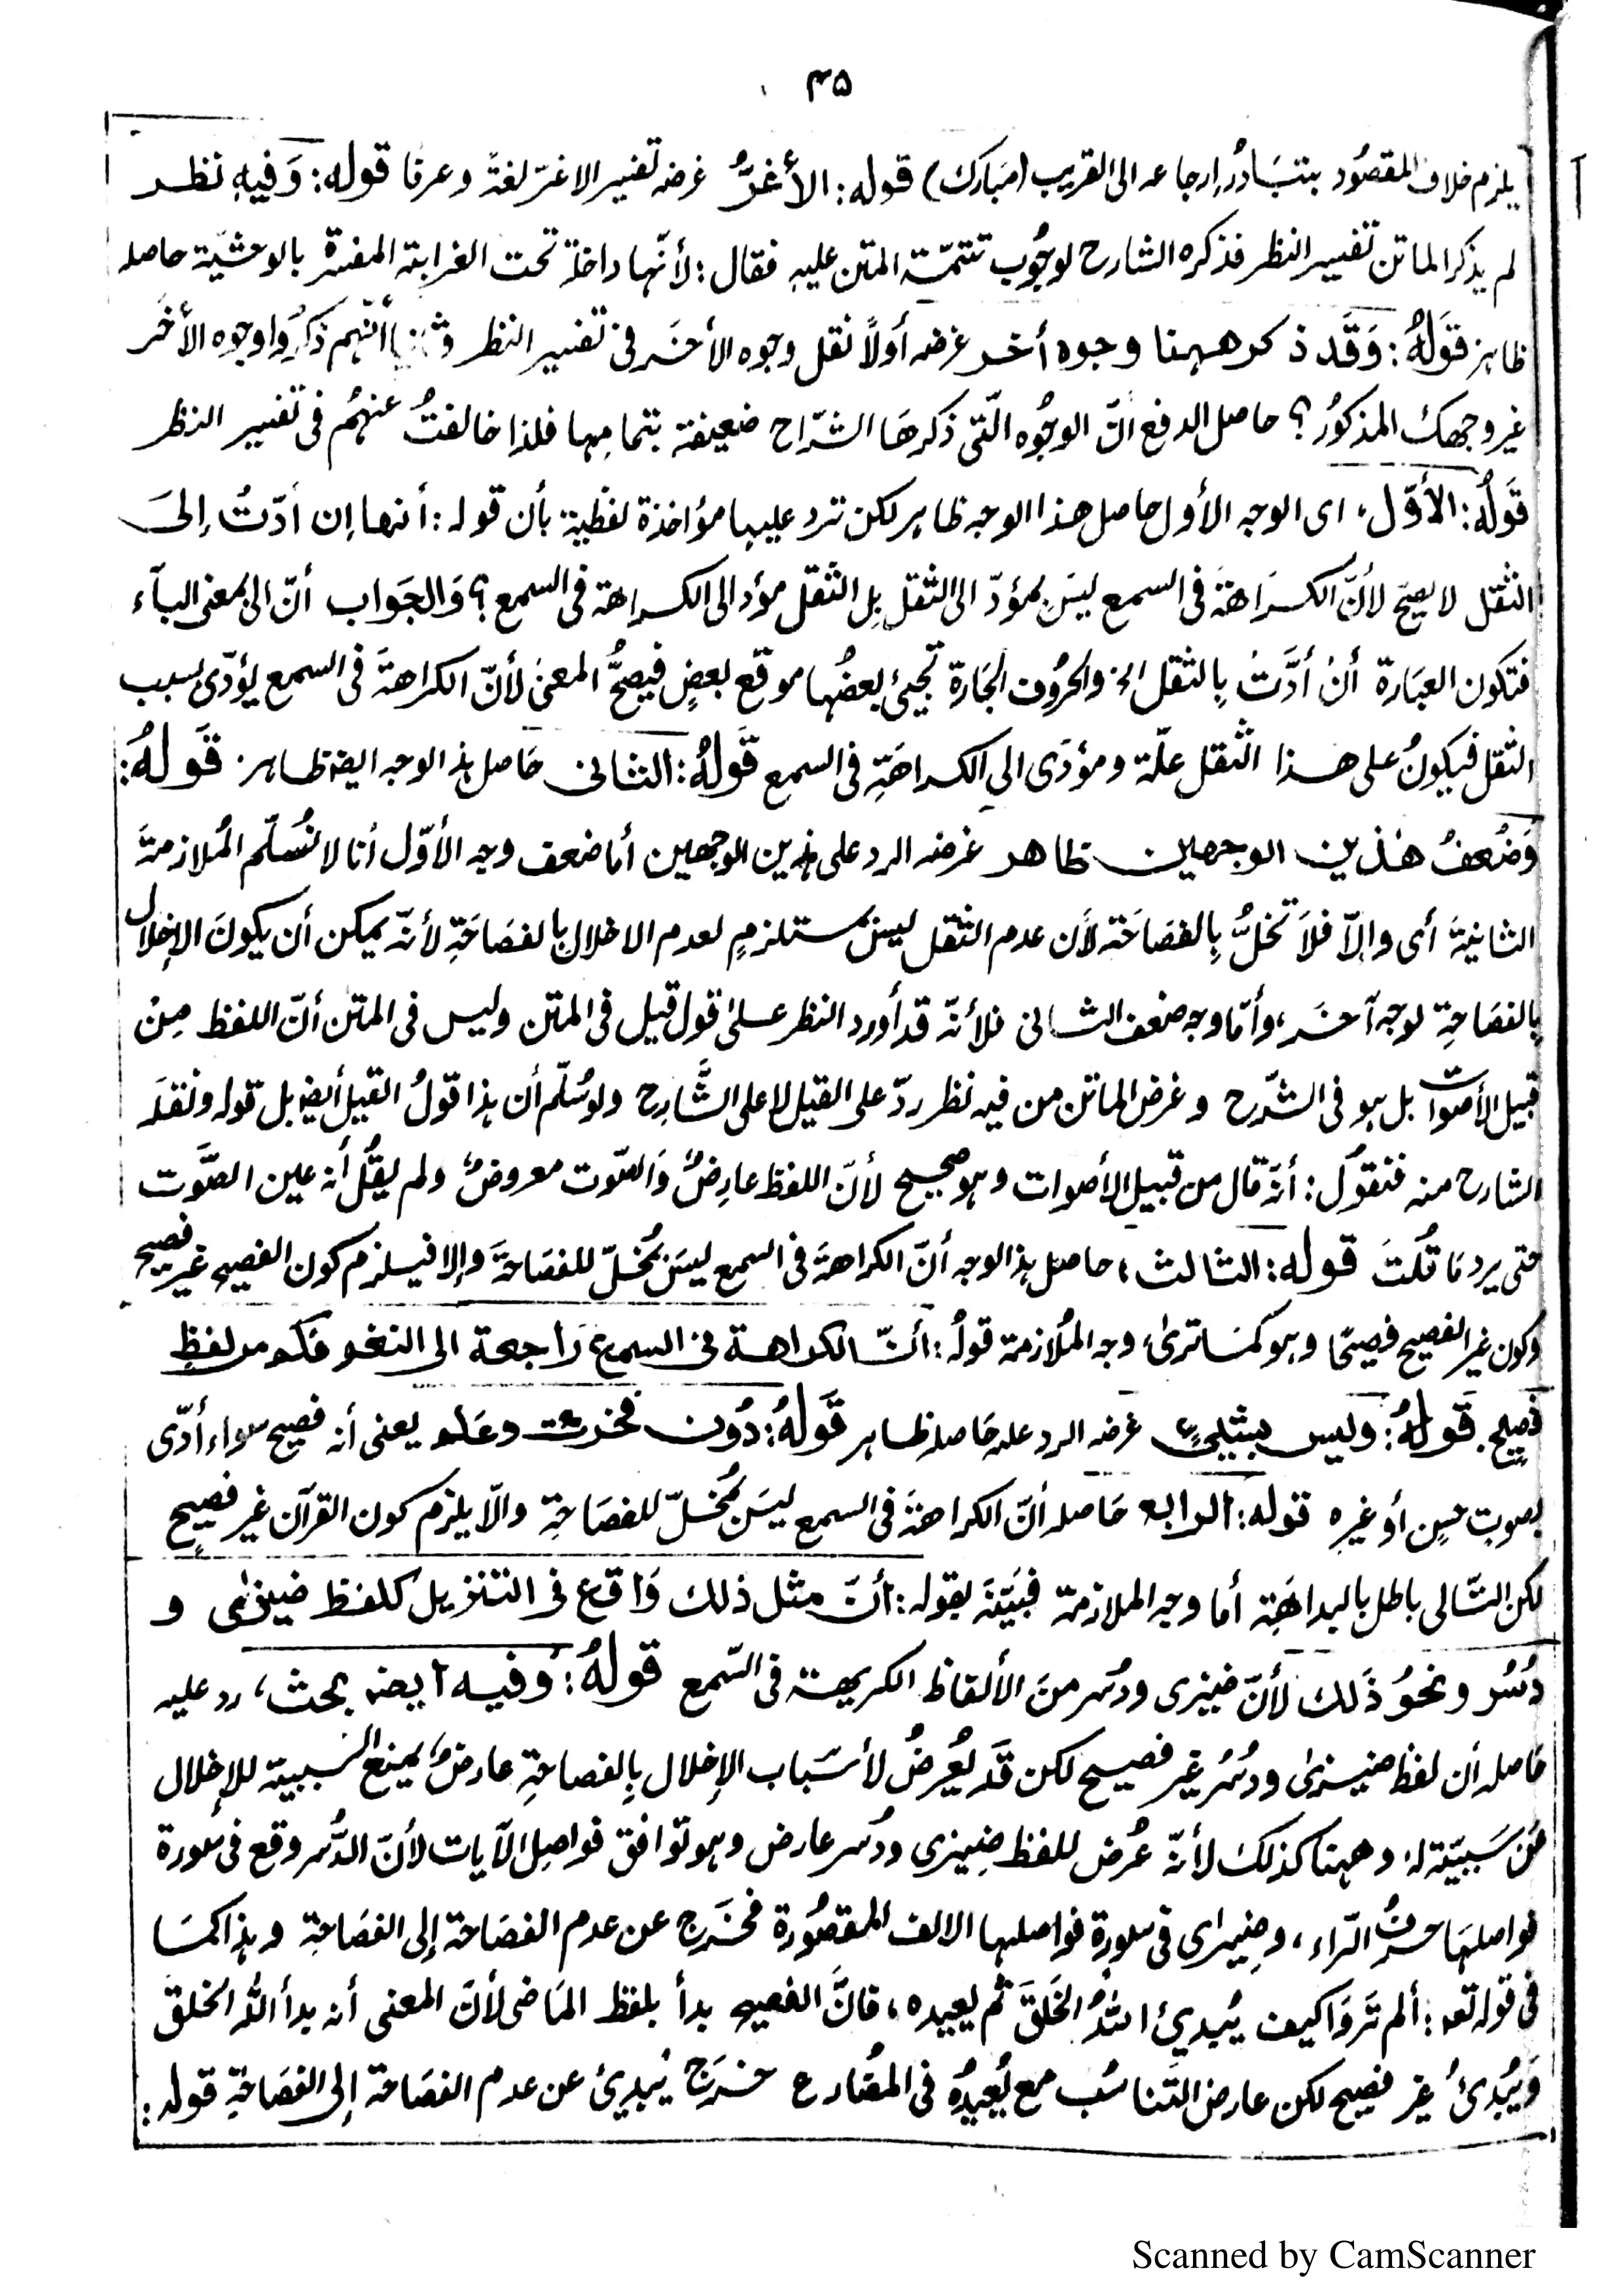 ۴۵
يلزم خلاف المقصُود بتبَادُر إرجاعه الى القريب (مبَارك) قوله: الأغرُّ غرضه تفسير الاغرّ لغة وعرفا قوله: وَفيهِ نظر
لم يذكر الماتن تفسير النظر فذكره الشارح لوجُوب تتمّة المتن عليهِ فقال: لأنّها داخلة تحت الغرابة المفسّرة بالوحشيّة حاصله
ظاهر قوَلهُ: وَقَد ذكر ههنا وجوه أخر غرضه أولاً نقل وجوه الأخَر فى تفسير النظر وثانيا أنّهم ذكرُوا وجوه الأخَر
غير وجهك المذكورُ؟ حاصل الدفع انّ الوجُوه الّتى ذكرهَا الشرّاح ضعيفة بتمامِها فلذا خالفتُ عنهُم فى تفسير النظر
قَولُه: الأوّل، اى الوجه الأول حاصل هذا الوجه ظاهر لكن ترد عليها مؤاخذة لفظية بأن قوله: أنها إن أدّتُ إلىَ
الثقل لا يصحّ لأنّ الكرَاهةَ فى السمع ليسَ بمؤدّ الى الثقل بل الثقل مؤد الى الكراهة فى السمع؟ وَالجَواب أنّ الى بمعنى البآء
فتكون العبَارة أنْ أدَّتْ بِالثقل الخ والحرُوف الجَارة تجيئ بعضُها موقع بعضٍ فيصحُّ المعنىٰ لأنّ الكراهةَ فى السمع يؤدّى بسبب
الثقل فيكونُ على هذا الثقل علّة ومؤدّى الى الكراهَةِ فى السمع قَولهُ: الثانى حَاصل هذ الوجه ايضه ظاهر. قَولهُ:
وَضُعفُ هٰذين الوجهين ظاهر غرضه الرد على هٰذين الوجهين أما ضعف وجه الأوّل أنا لا نُسَلّم المُلازمةَ
الثانيةَ أى وإلاّ فلاَ تخلُّ بِالفصَاحَة لأن عدم الثقل ليسَ بمستلزمٍ لعدم الاخلال بالفصَاحَةِ لأنّه يمكن أن يكونَ الإخلال
بالفصَاحةِ لوجه آخرَ، وأمّا وجه ضعف الثانى فلأنّه قد أورد النظر علىٰ قول قيل فى المتن وليس فى المتن أنّ اللفظ مِنْ
قبيل الأصوات بل هو فى الشّرح وغرض الماتن من فيه نظر ردّ على القيل لا على الشَّارح ولو سُلّم أن هذا قولُ القيل أيضه بل قوله ونقلَه
الشارح منه فنقولُ: أنّه قال من قبيل الأصوات وهو صحيح لأنّ اللفظ عارِضٌ وَالصّوت معروضٌ ولم يقُل أنه عين الصَّوت
حتى يرد مَا قُلتَ قوله: الثالث، حاصل هذ الوجه أنّ الكراهةَ فى السمع ليسَ بمُخلّ للفصَاحةَ وإلا فيلزم كون الفصيح غير فصيح
وكون غير الفصيح فصيحًا وهو كمَا ترىٰ، وجه المُلازمة قولُه: أنّ الكراهة فى السمع رَاجعة الى النغم فكم من لفظٍ
فصيح. قَولهُ: وليس بشيئ، غرضه الرد عله حَاصله ظاهر قَولهُ: دُون فخرت وعَلم يعنى أنه فصيح سواء أدّى
بصوتٍ حسنٍ أو غيره قوله: الرابع حَاصله أنّ الكراهةَ فى السمع ليسَ بمُخلّ للفصَاحةِ والّا يلزم كون القرآن غير فصيحٍ
لكن التّالى باطل بالبداهَةِ أما وجه الملازمة فبَيّنَه بقوله: أنّ مثل ذلك وَاقع فى التنزيل كلفظ ضيزىٰ و
دُسُر ونحوُ ذَلك لأنّ ضيزى ودُسُر منَ الألفاظ الكريهة فى السّمع قولهُ: وفيه أيضه بحث، رد عليه
حَاصله أن لفظ ضيزىٰ ودُسُر غير فصيح لكن قَد يُعرضُ لأسبَاب الإخلال بِالفصاحةِ عارضٌ، يمنع السَببية للإخلال
عَن سَببيّة له، وههنا كذلك لأنّه عُرض للفظ ضِيزى ودُسُر عارض وهو توافق فواصِل الآيات لأنّ الدُّسُر وقع فى سورة
فواصلهَا حرفُ الرّاء، وضِيزى فى سورةٍ فواصلها الالف المقصُورة فخرَج عن عدم الفصَاحة إلى الفصَاحةِ وهذا كمَا
فى قوله تعه: ألم تَروَا كيف يُبدئ اللهُ الخَلقَ ثم يعيده، فانَّ الفصيح بدأ بلفظ المَاضى لأنّ المعنى أنه بدأ اللّه الخلق
وَيُبْدئُ غير فصيح لكن عارض التَّناسُب مع يُعيدُه فى المضَارع خرَج يُبدِئ عن عدم الفصَاحة إلى الفصَاحةِ قوله:
Scanned by CamScanner